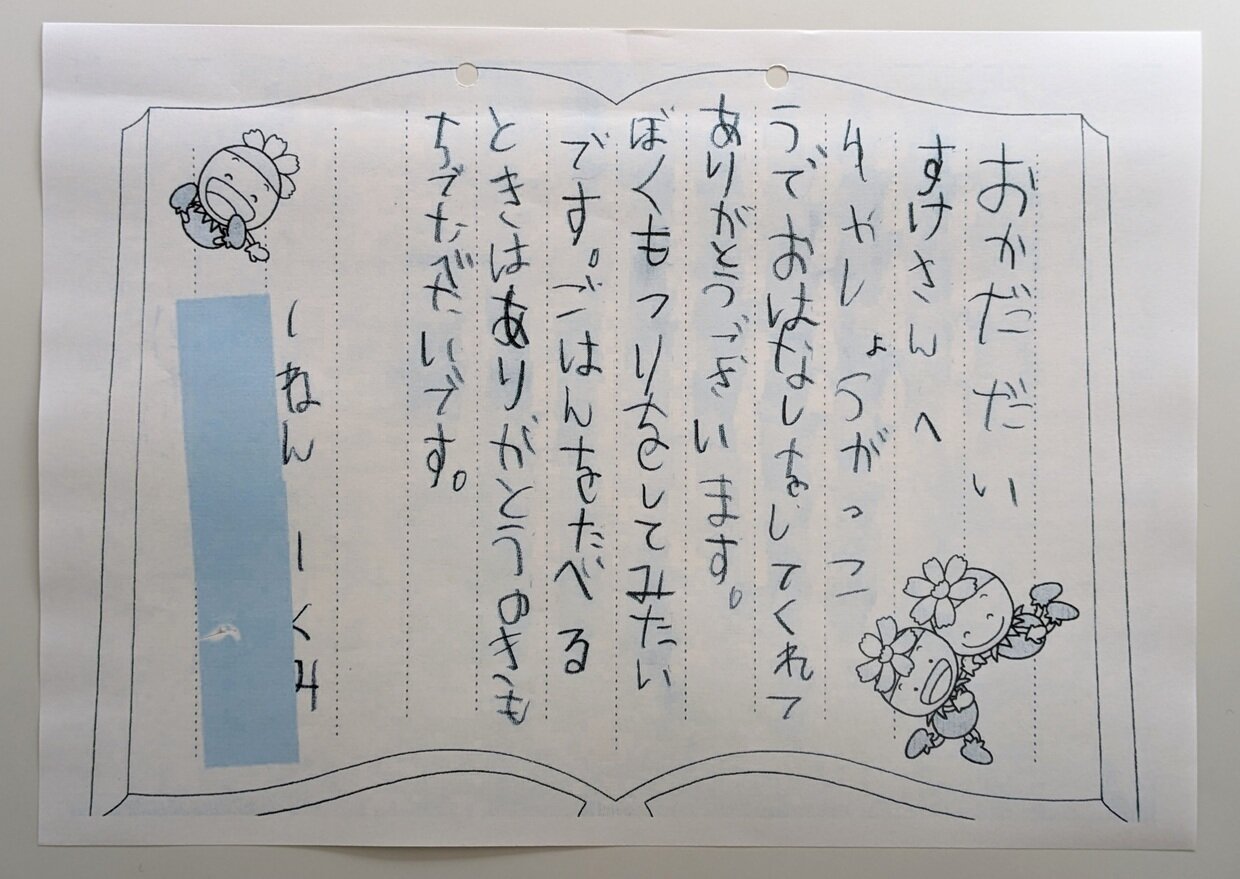 おかだ だい
すけさん へ
やしょうがっこ
うでおはなしをしてくれて
ありがとうございます。
ぼくもつりをしてみたい
です。ごはんをたべる
ときはありがとうのきも
ちでたべたいです。
1ねん 1くみ